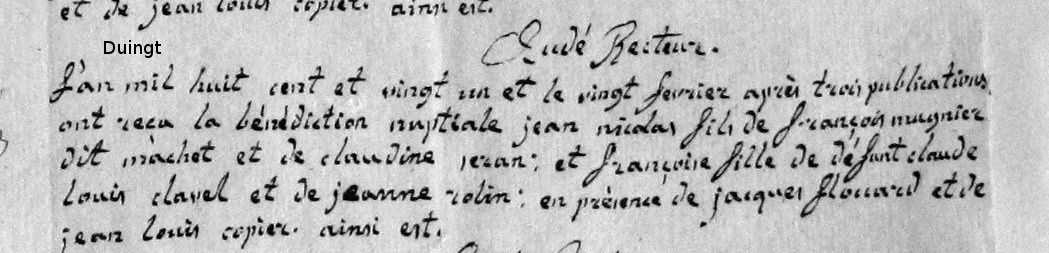 et de jean louis copier. ainsi est.
Duingt
Eudé Recteur.
L'an mil huit cent et vingt un et le vingt fevrier après trois publications
ont reçu la bénédiction nuptiale jean nicolas fils de françois mugnier
dit machet et de claudine seran; et françoise fille de défunt claude
louis clavel et de jeanne rolin; en présence de jacques flouard et de
jean louis copier. ainsi est.